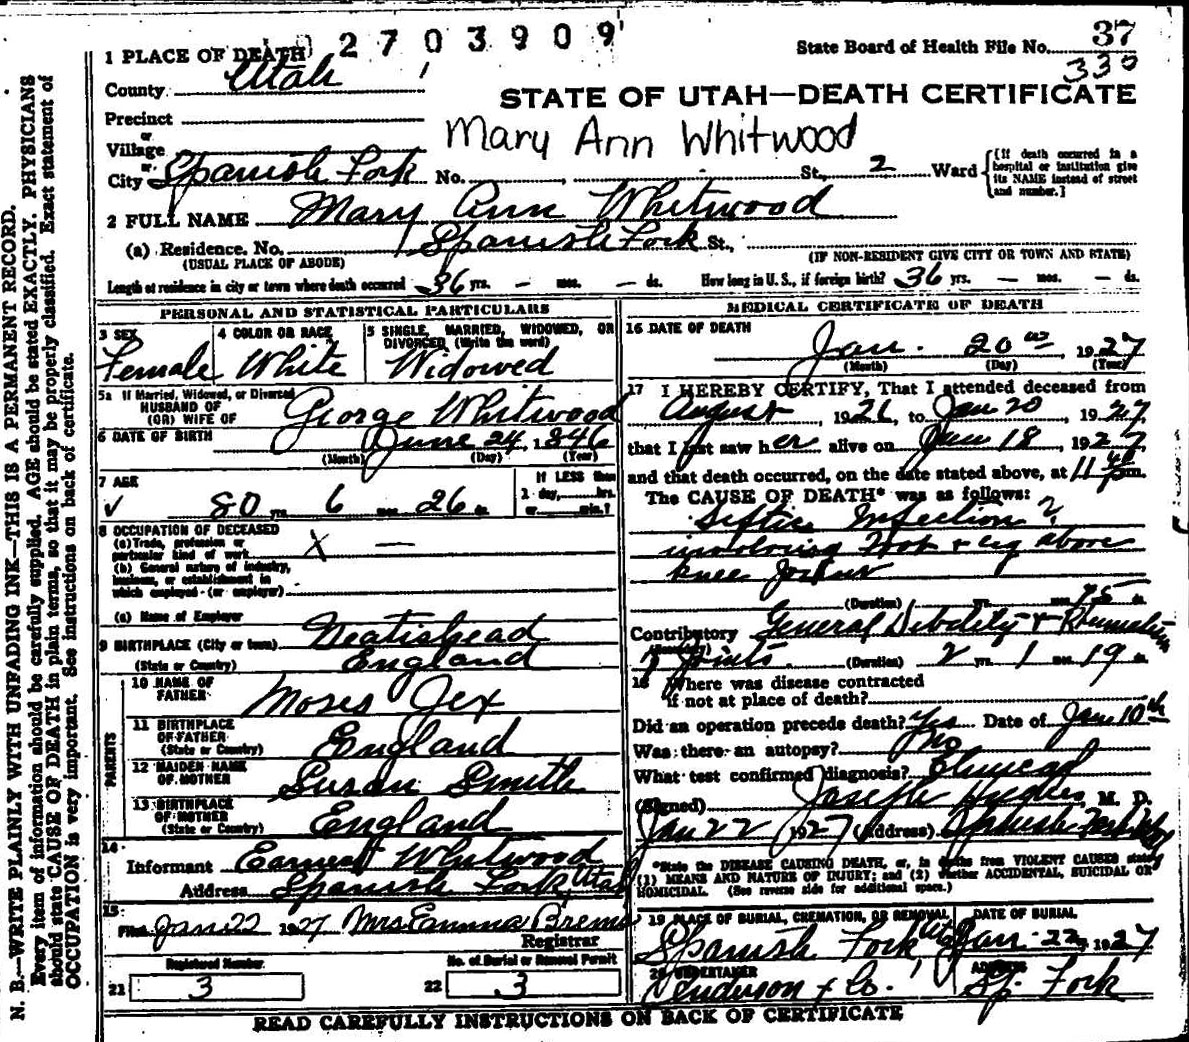 2703909
State Board of Health File No. 37
330
1 PLACE OF DEATH
County Utah
STATE OF UTAH—DEATH CERTIFICATE
Precinct
or
Village
Mary Ann Whitwood
or
City Spanish Fork No. , St., 2 Ward {[If death occurred in a hospital or institution give its NAME instead of street and number.]
2 FULL NAME Mary Ann Whitwood
(a) Residence. No. Spanish Fork St.,
(USUAL PLACE OF ABODE) (IF NON-RESIDENT GIVE CITY OR TOWN AND STATE)
Length of residence in city or town where death occurred 36 yrs. — mos. — ds. How long in U. S., if foreign birth? 36 yrs. — mos. — ds.
PERSONAL AND STATISTICAL PARTICULARS
3 SEX Female
4 COLOR OR RACE White
5 SINGLE, MARRIED, WIDOWED, OR DIVORCED (Write the word) Widowed
5a If Married, Widowed, or Divorced
HUSBAND OF
(OR) WIFE OF George Whitwood
6 DATE OF BIRTH June 24, 1846
(Month) (Day) (Year)
7 AGE
80 yrs. 6 mos. 26
IF LESS than
1 day, hrs.
or min.?
8 OCCUPATION OF DECEASED
(a) Trade, profession or
particular kind of work X —
(b) General nature of industry,
business, or establishment in
which employed (or employer)
(c) Name of Employer
9 BIRTHPLACE (City or town) Neatishead
(State or Country) England
PARENTS
10 NAME OF FATHER Moses Jex
11 BIRTHPLACE OF FATHER (State or Country) England
12 MAIDEN NAME OF MOTHER Susan Smith
13 BIRTHPLACE OF MOTHER (State or Country) England
14
Informant Earnest Whitwood
Address Spanish Fork, Utah
15
Filed Jan 22 1927 Mrs Emma Brems
Registrar
Registered Number
21 3
No. of Burial or Removal Permit
22 3
MEDICAL CERTIFICATE OF DEATH
16 DATE OF DEATH
Jan. 20 1927
(Month) (Day) (Year)
17 I HEREBY CERTIFY, That I attended deceased from
August, 1926, to Jan 20, 1927
that I last saw her alive on Jan 18, 1927
and that death occurred, on the date stated above, at 11 40 pm.
The CAUSE OF DEATH* was as follows:
Septic Infection
involving Foot & leg above
knee
(Duration) yrs. mos. ds.
Contributory General Debility &
Joints. (Duration) 2 yrs. 1 mos. 19
18 Where was disease contracted
if not at place of death?
Did an operation precede death? Yes Date of Jan 10th
Was there an autopsy? No
What test confirmed diagnosis?
(Signed) Joseph Hughes, M. D.
Jan 22, 1927 (Address) Spanish Fork
*State the DISEASE CAUSING DEATH, or, in deaths from VIOLENT CAUSES state
(1) MEANS AND NATURE OF INJURY; and (2) whether ACCIDENTAL, SUICIDAL OR
HOMICIDAL. (See reverse side for additional space.)
19 PLACE OF BURIAL, CREMATION, OR REMOVAL Spanish Fork Ut
DATE OF BURIAL Jan. 22, 1927
20 UNDERTAKER Anderson & Co.
ADDRESS Sp. Fork
READ CAREFULLY INSTRUCTIONS ON BACK OF CERTIFICATE
N. B.—WRITE PLAINLY WITH UNFADING INK—THIS IS A PERMANENT RECORD.
Every item of information should be carefully supplied. AGE should be stated EXACTLY. PHYSICIANS
should state CAUSE OF DEATH in plain terms, so that it may be properly classified. Exact statement of
OCCUPATION is very important. See instructions on back of certificate.